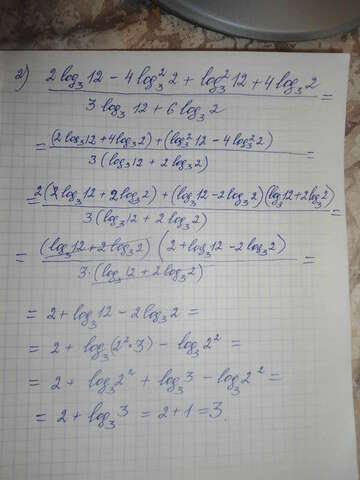 2) (2log₃12 - 4log₃²2 + log₃²12 + 4log₃2) / (3log₃12 + 6log₃2) =
= ((2log₃12 + 4log₃2) + (log₃²12 - 4log₃²2)) / (3(log₃12 + 2log₃2)) =
(2(2log₃12 + 2log₃2) + (log₃12 - 2log₃2)(log₃12 + 2log₃2)) / (3(log₃12 + 2log₃2)) =
= ((log₃12 + 2log₃2)(2 + log₃12 - 2log₃2)) / (3·(log₃12 + 2log₃2)) =
= 2 + log₃12 - 2log₃2 =
= 2 + log₃(2²·3) - log₃2² =
= 2 + log₃2² + log₃3 - log₃2² =
= 2 + log₃3 = 2 + 1 = 3.